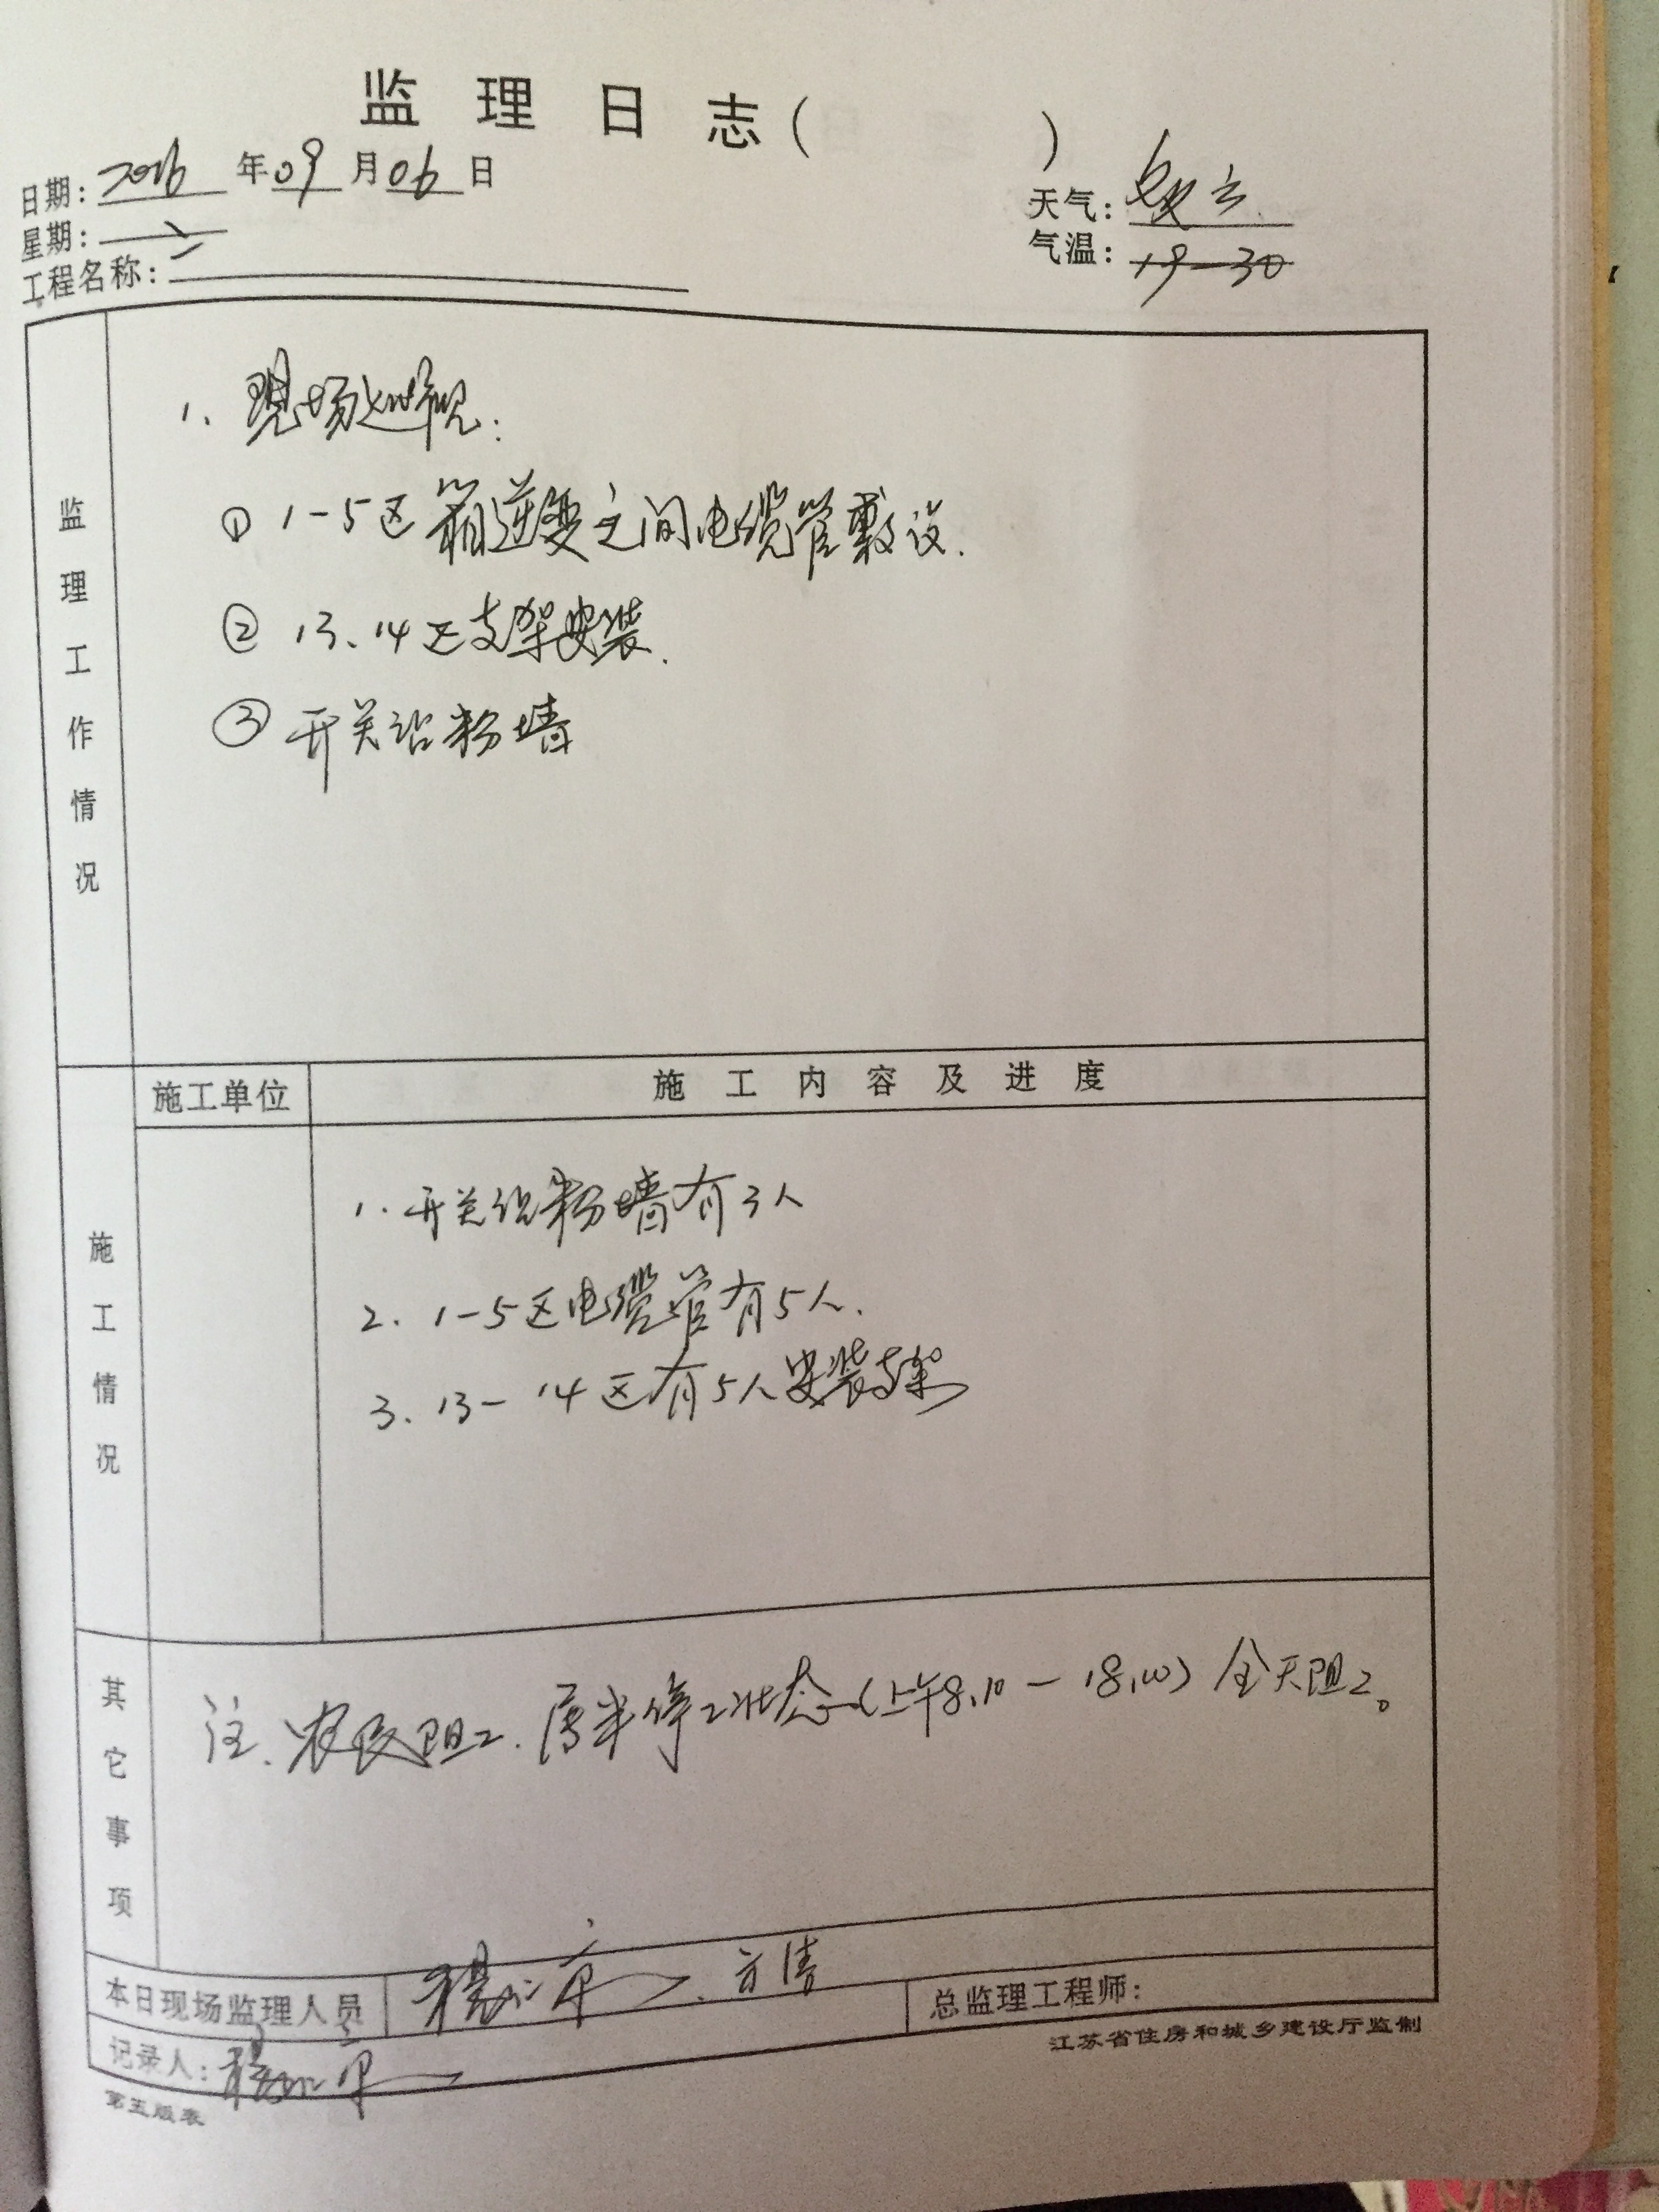 监理日志( )
日期: 2016 年 09 月 06 日
星期: 二
天气: 多云
气温: 19-30
工程名称:
监理工作情况
1、现场巡视:
① 1-5区箱逆变之间电缆管敷设.
② 13、14区支架安装.
③ 开关站粉墙
施工情况
施工单位 施工内容及进度
1. 开关站粉墙有3人
2. 1-5区电缆管有5人.
3. 13-14区有5人安装支架
其它事项
注、农民阻工.属半停工状态(上午8:10-18:00)全天阻工。
本日现场监理人员
总监理工程师:
记录人:
江苏省住房和城乡建设厅监制
第五版表